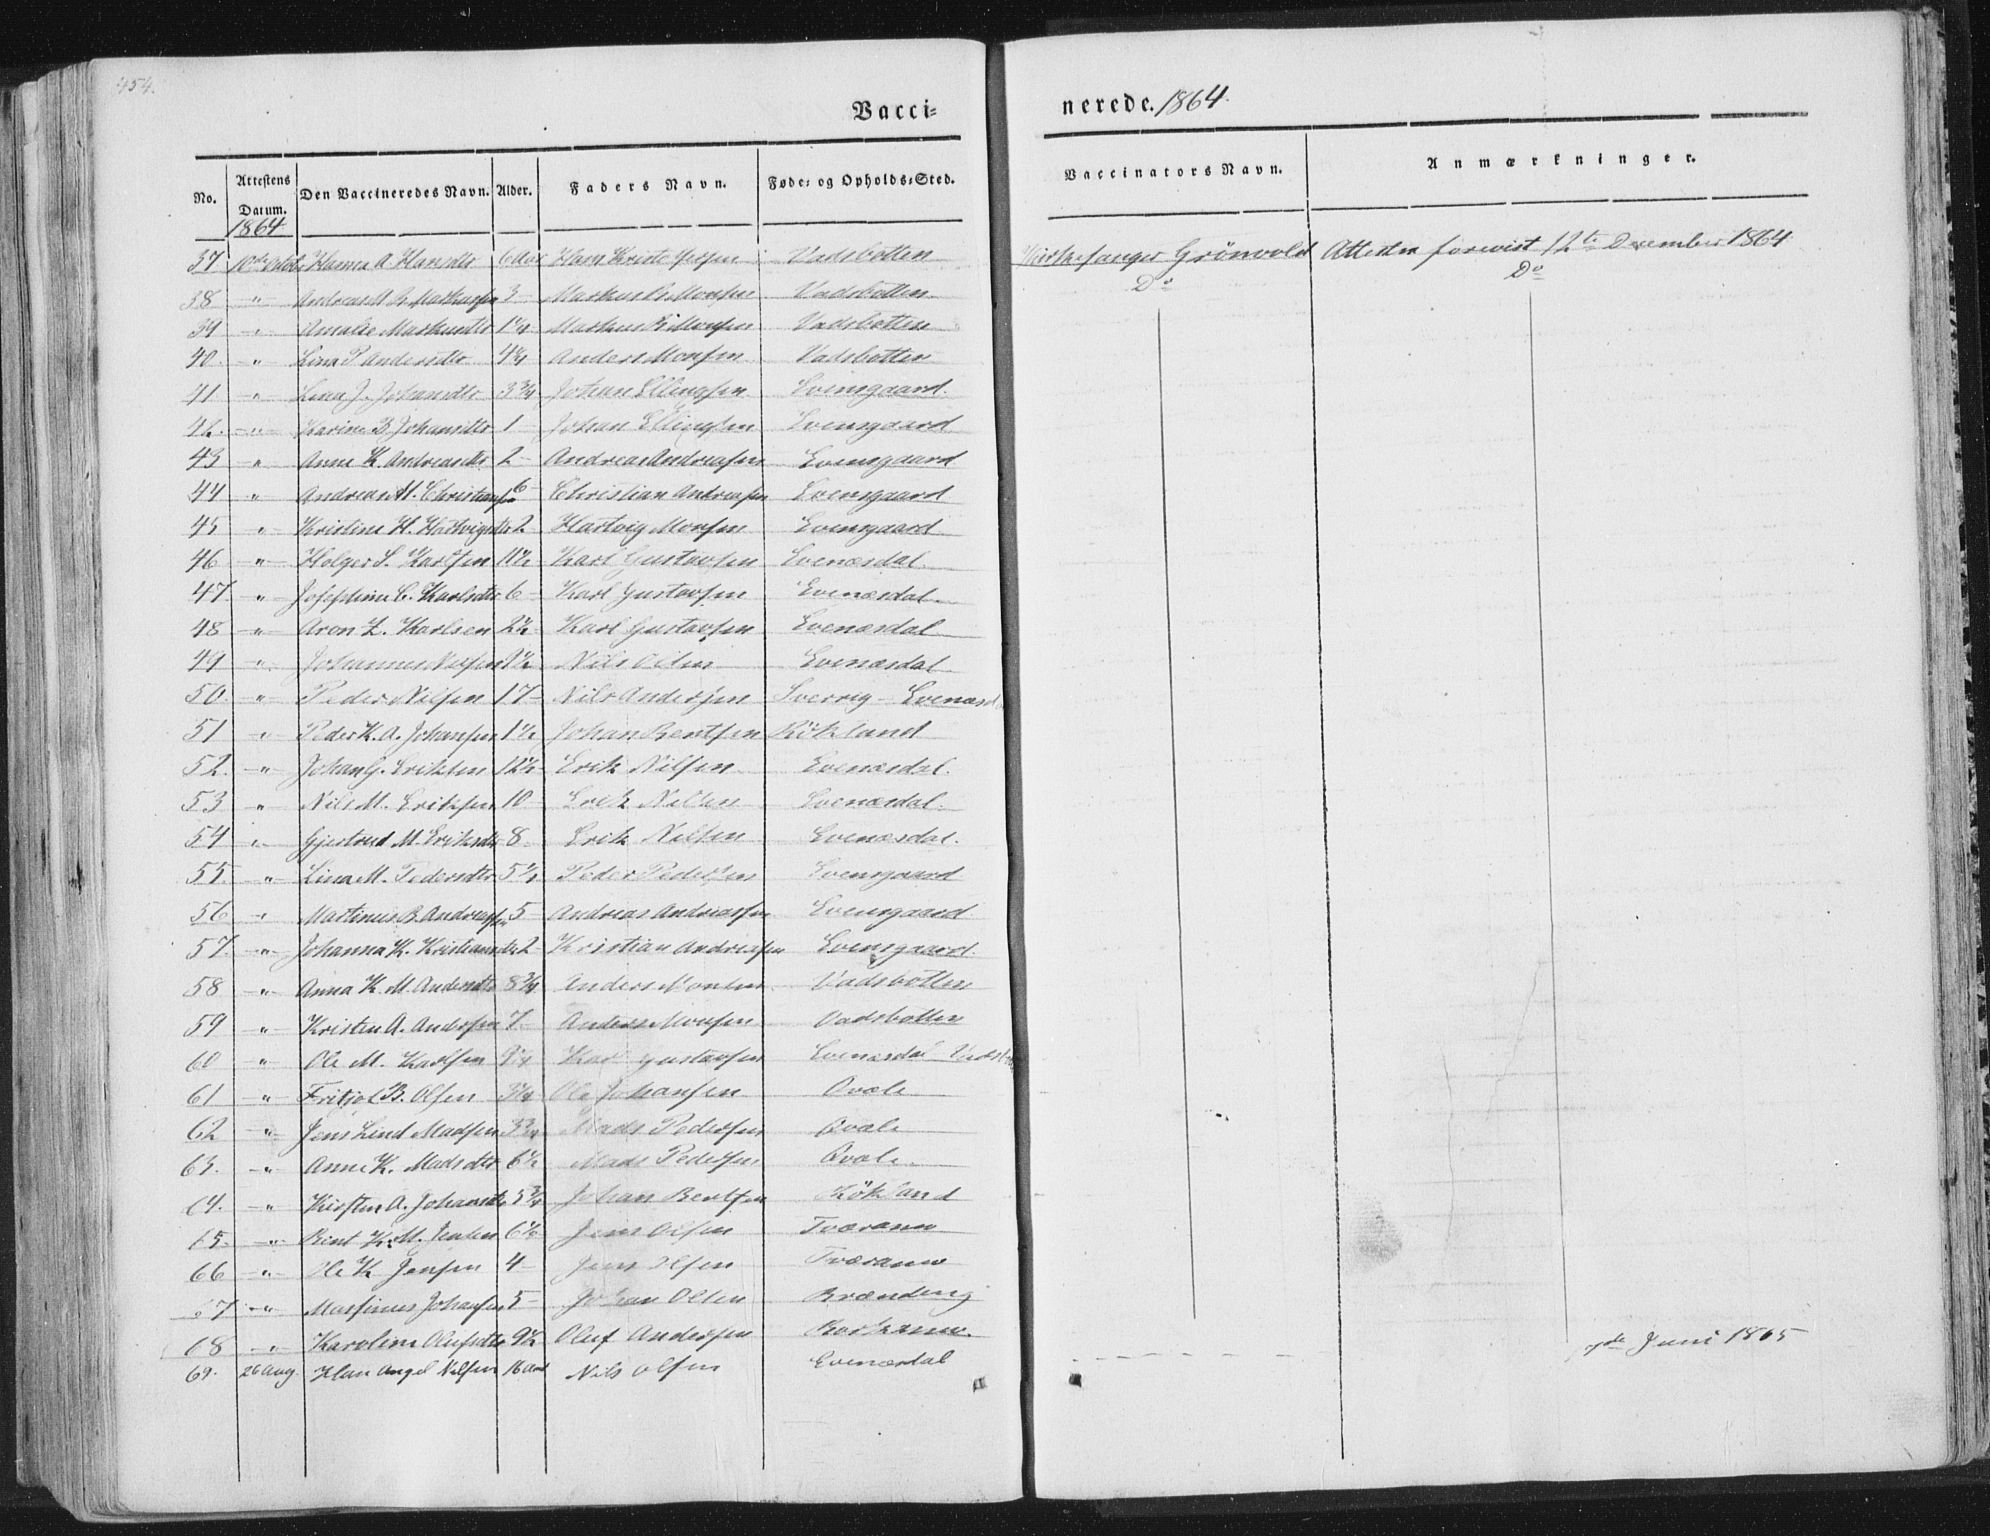 454.
Vacci=
nerede. 1864.
No. Attestens Datum. Den Vaccineredes Navn. Alder. Faders Navn. Føde= og Opholds=Sted. Vaccinators Navn. Anmærkninger.
1864
37 10de Octob Hanna A Hansdtr 6 Aar Hans Vadsbotten Kirkesanger Grönvold Attesten forevist 12te December 1864
38 " Andreas 3 - Markus Monsen Vadsbotten Do Do
39 " Amalie Markusdtr 1 Markus Monsen Vadsbotten
40. " Lina P Andersdtr Anders Monsen Vadsbotten
41 " Lina J. Johansdtr 3 3/4 Johan Ellingsen Evensgaard.
42. " Karine B Johansdtr 1 Johan Ellingsen Evensgaard
43 " Anne K. Andreasdtr 2 - Andreas Andreasen Evensgaard
44 " Andreas M. Christiansen 6 - Christian Andreasen Evensgaard
45 " Kristine H. Hartvigsdtr 2 Hartvig Monsen Evensgaard
46 " Holger S. Karlsen 11 1/2 Karl Gustavsen Evenæsdal.
47. " Josephine C. Karlsdtr 6 - Karl Gustavsen Evenæsdal.
48 " Aron Z. Karlsen 2 1/2 Karl Gustavsen Evenæsdal
49 " Johannes Nilsen Nils Olsen Evenæsdal
50. " Peder Nilsen 17 - Nils Andersen Sverrig - Evenæsd
51 " Peder K. A. Johansen 1 1/2 Johan Bentsen Rökland
52. " Johan G. Eriksen 12 1/2 Erik Nilsen Evenæsdal.
53 " Nils M. Eriksen 10 - Erik Nilsen Evenæsdal.
54 " Gjertrud M. Eriksdtr 8. Erik Nilsen Evenæsdal.
55. " Lina M. Pedersdtr 5 Peder Pedersen Evensgaard
56 " Martinus B. Andreassen 5 - Andreas Andreassen Evensgaard
57. " Johanna K. Kristiansdtr 2 - Kristian Andreasen Evensgaard.
58 " Anna K. M. Andersdtr 8 3/4 Anders Monsen Vadsbotten
59 " Kristen A. Andersen 7 - Anders Monsen Vadsbotten
60 " Ole M. Karlsen Karl Gustavsen Evenæsdal
61 " Fritjof B. Olsen Ole Johansen Qvale
62 " Jens Lind Madsen Mads Pedersen Qvale
63. " Anne K. Madsdtr 6 1/2 Mads Pedersen Qvale.
64. " Kirsten A. Johansdtr 5 3/4 Johan Bentsen Rökland
65. " Bent K. M. Jensen 6 1/2 Jens Olsen Tværanw
66 " Ole K Jensen 4 - Jens Olsen Tværanw
67 " Johansen 5 - Johan Olsen Brænding
68 " Karoline Olufsdtr 9 1/2 Oluf Andersen
69. 26 Aug. Hans Angel Nilsen 16 Aar Nils Olsen Evenæsdal 7de Juni 1865